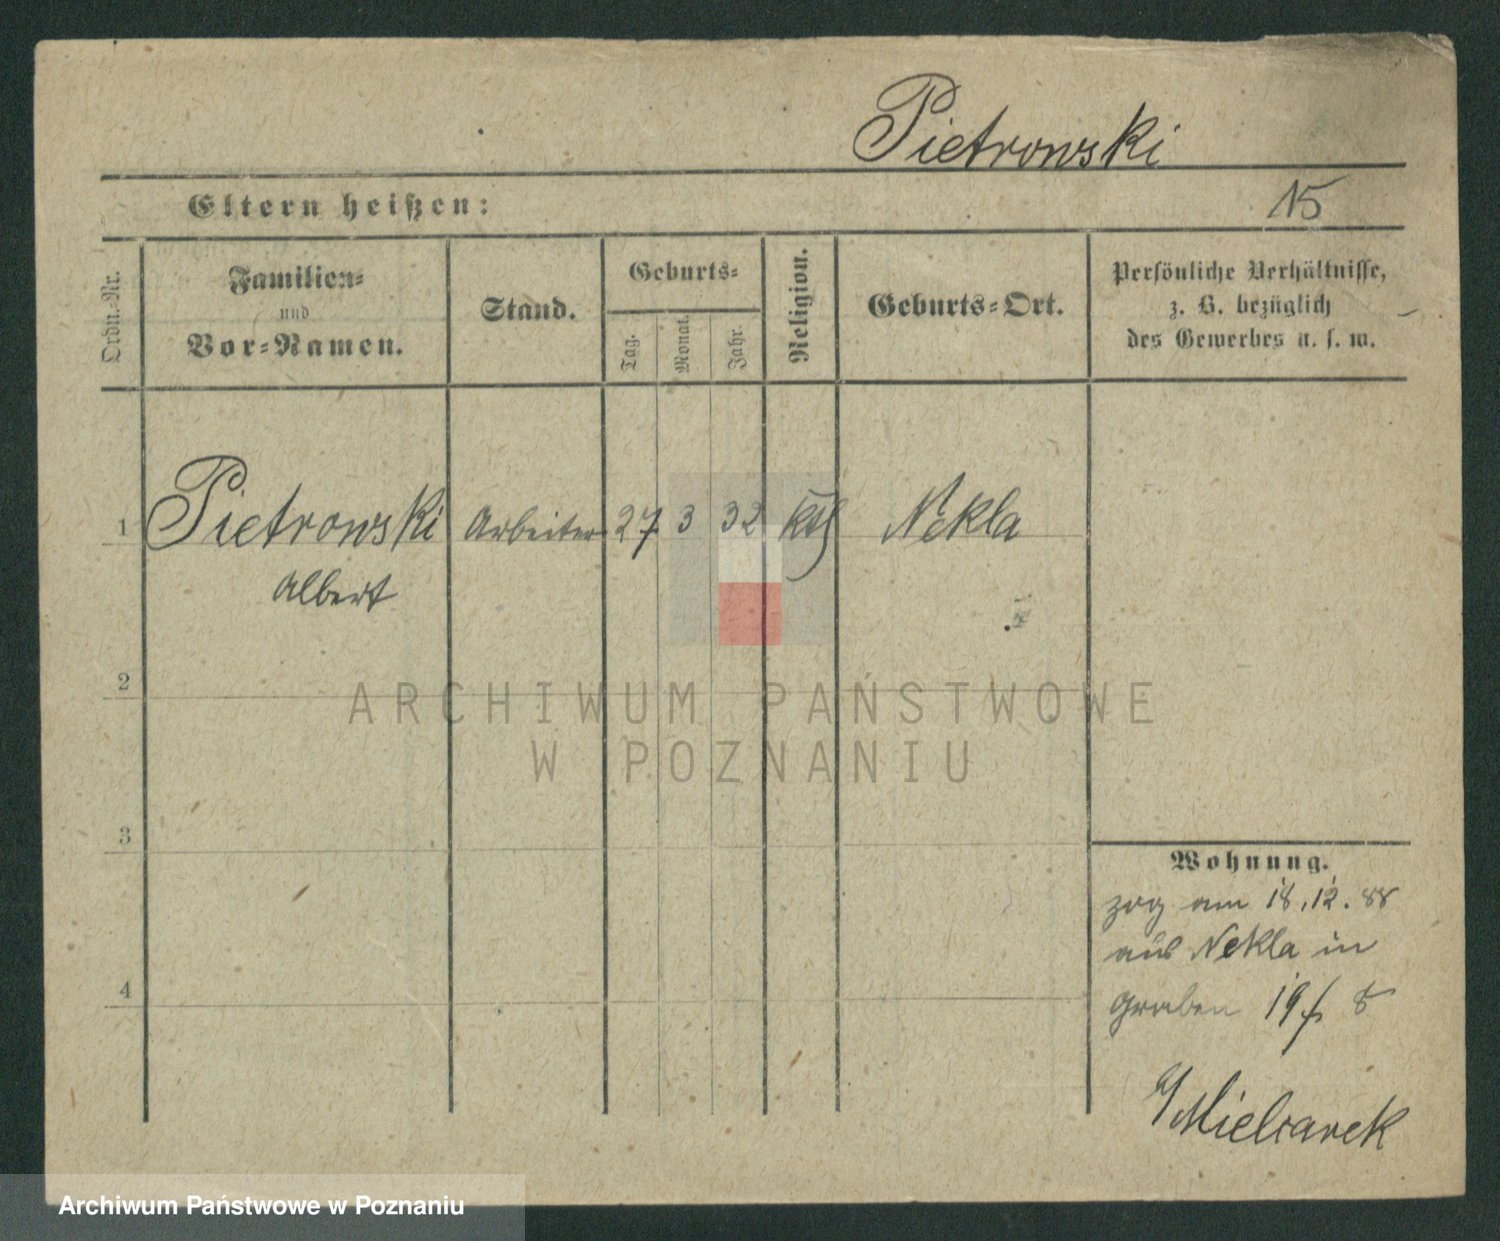 Pietrowski
Eltern heißen:
15
Ordn.-Nr.
Familien-
und
Vor-Namen.
Stand.
Geburts-
Tag.
Monat.
Jahr.
Religion.
Geburts-Ort.
Persönliche Verhältnisse,
z. B. bezüglich
des Gewerbes u. s. w.
1 Pietrowski Arbeiter 27 3 32 kth Nekla
Albert
2
3
4
Wohnung.
zog am 18.12.88
aus Nekla in
Graben 19
Mielcarek
ARCHIWUM PAŃSTWOWE
W POZNANIU
Archiwum Państwowe w Poznaniu